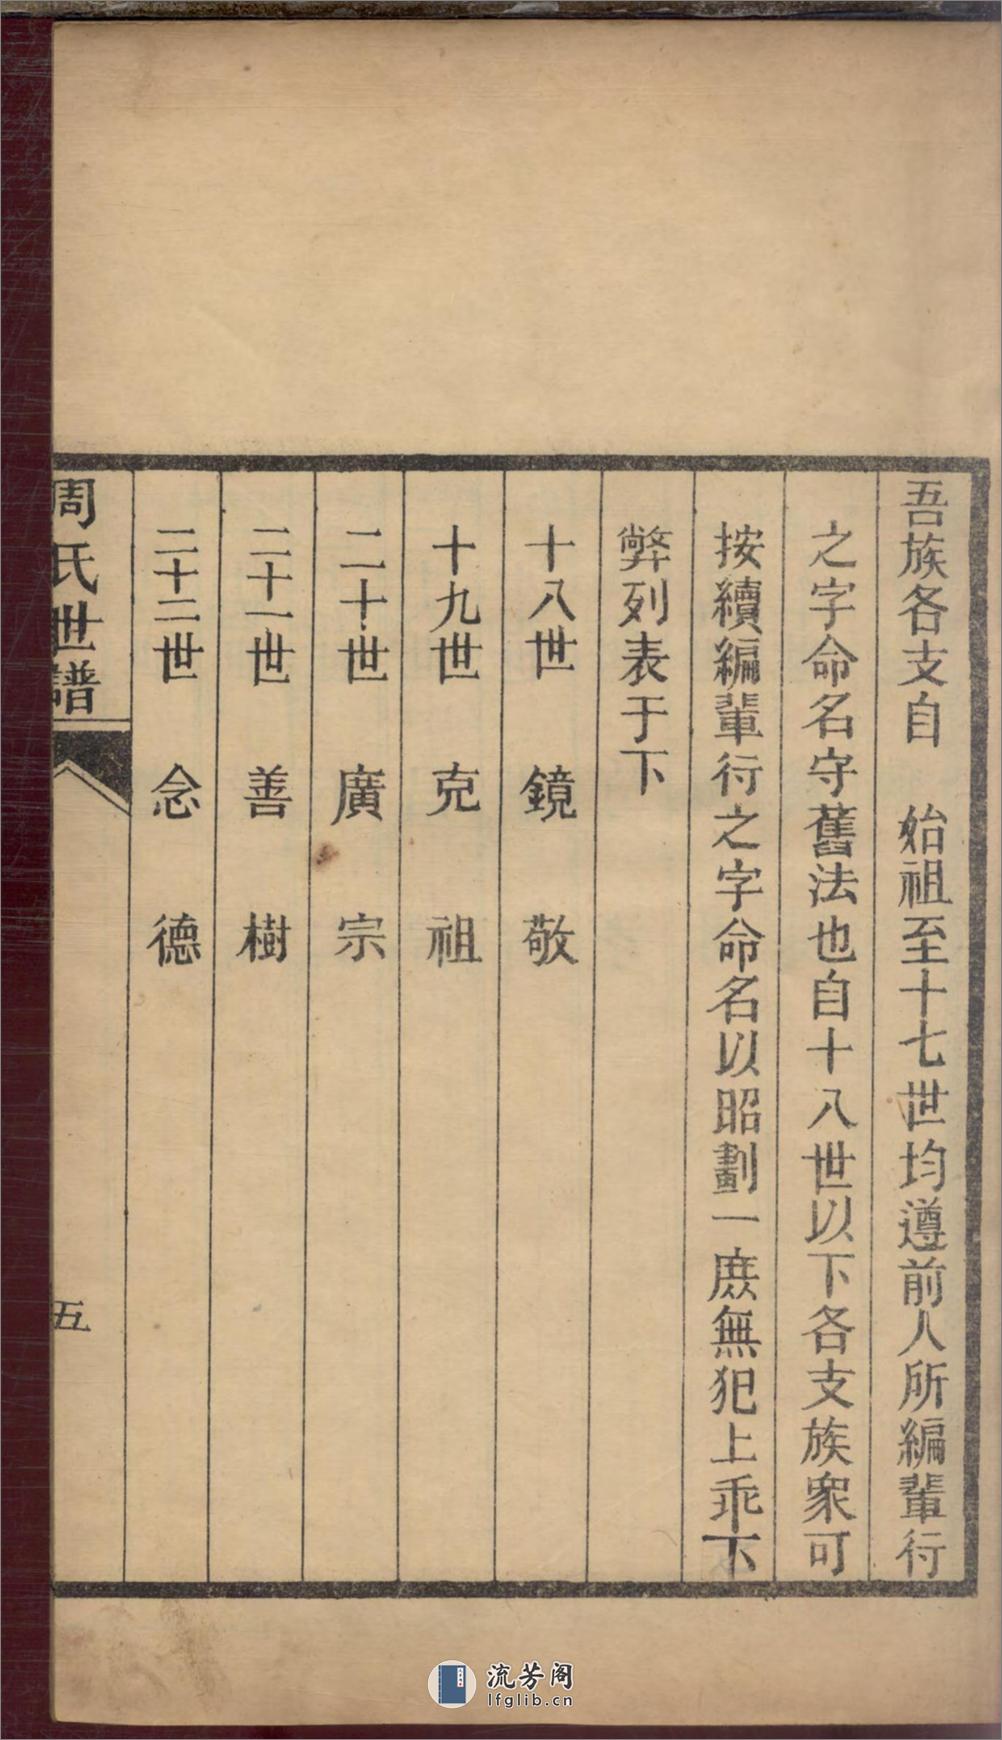 吾族各支自　始祖至十七世均遵前人所編輩行
之字命名守舊法也自十八世以下各支族衆可
按續編輩行之字命名以昭劃一庶無犯上乖下
弊列表于下
十八世　鏡　敬
十九世　克　祖
二十世　廣　宗
二十一世　善　樹
二十二世　念　德
周氏世譜
五
流芳阁
lfglib.cn